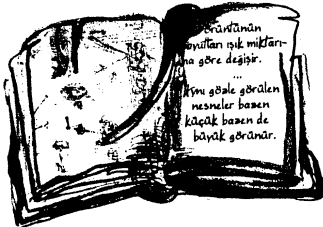 örüntünün
boyutları ışık miktarı-
na göre değişir.
...
Aynı gözle görülen
nesneler bazen
küçük bazen de
büyük görünür.